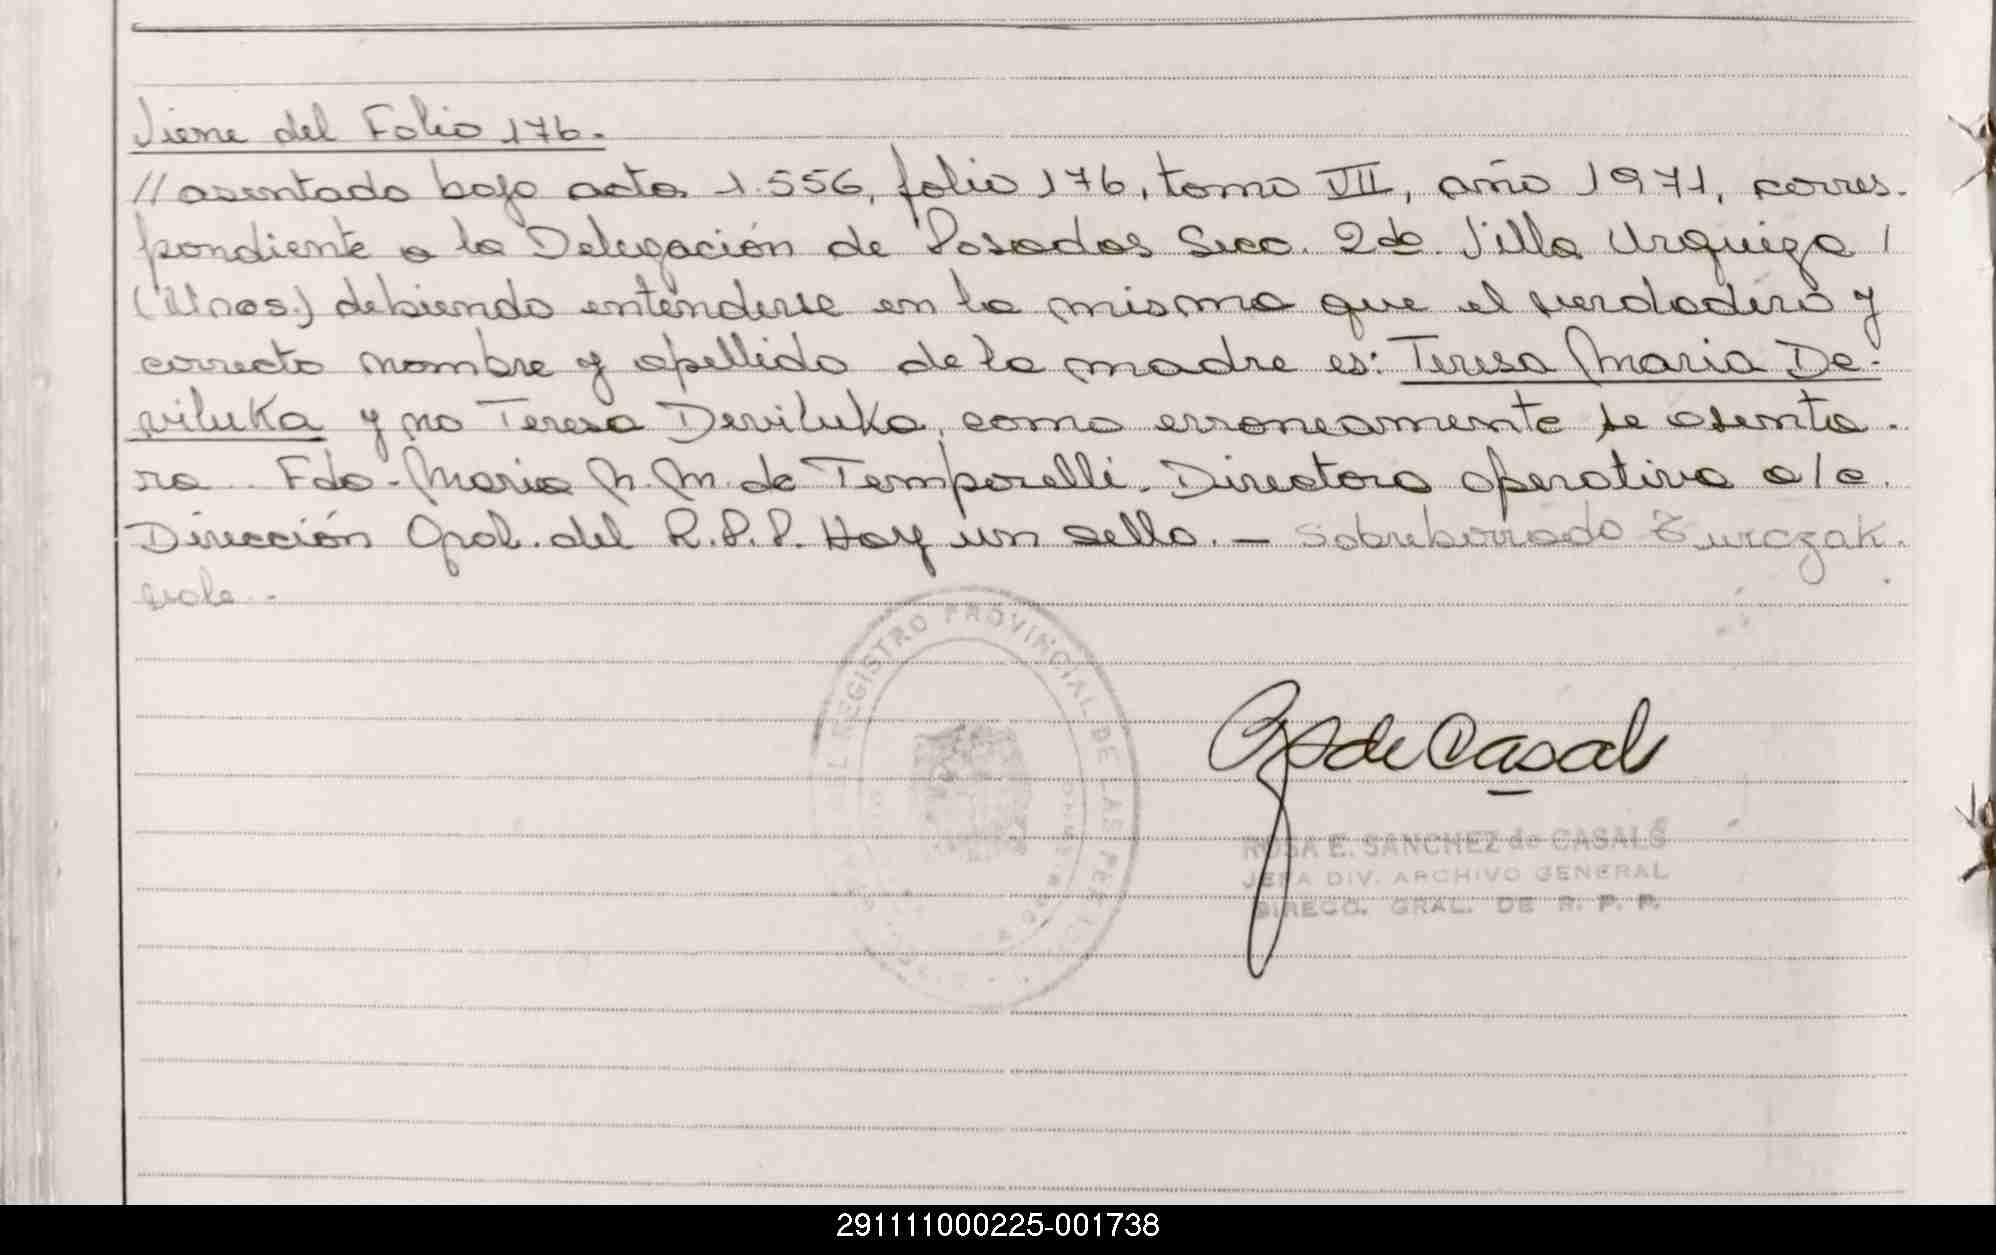 Viene del Folio 176.
// asentado bajo acta 1.556, folio 176, tomo VII, año 1971, corres-
pondiente a la Delegación de Posadas Secc. 2da. Villa Urquiza /
(Mnes.) debiendo entenderse en la misma que el verdadero y
correcto nombre y apellido de la madre es: Teresa Maria De-
viluka y no Teresa Deviluka, como erroneamente se asenta-
ra. Fdo. Maria N. M. de Temporelli. Directora operativa a/c.
Dirección Gral. del R.P.P. Hay un sello. - Sobreborrado Zurczak.
vale.-
REGISTRO PROVINCIAL DE LAS PERSONAS
de Casals
ROSA E. SANCHEZ de CASALS
JEFA DIV. ARCHIVO GENERAL
DIRECC. GRAL. DE R. P. P.
291111000225-001738